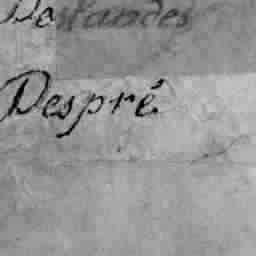 Daslandes
Despré